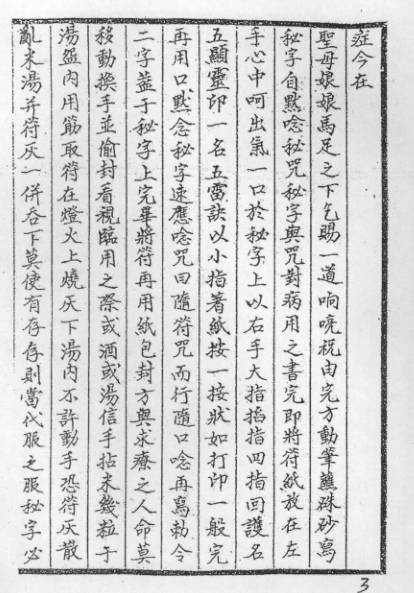 症今在
聖母娘娘馬足之下乞賜一道响喨祝由完方動筆蘸硃砂寫
秘字自默唸秘咒秘字與咒對病用之書完即將符紙放在左
手心中呵出氣一口於秘字上以右手大指掐指四指回護名
五顯靈印一名五雷訣以小指著紙按一按狀如打印一般完
再用口默念秘字速應唸咒曰隨符咒而行隨口唸再寫勅令
二字蓋于秘字上完畢將符再用紙包封方與求療之人命莫
移動換手並偷封看視臨用之際或酒或湯信手拈米幾粒于
湯盌內用筯取符在燈火上燒灰下湯內不許動手恐符灰散
亂米湯并符灰一併吞下莫使有存存則當代服之服秘字必
3